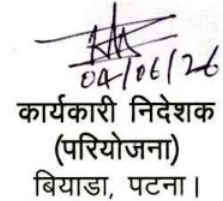 04/06/26
कार्यकारी निदेशक
(परियोजना)
बियाडा, पटना।